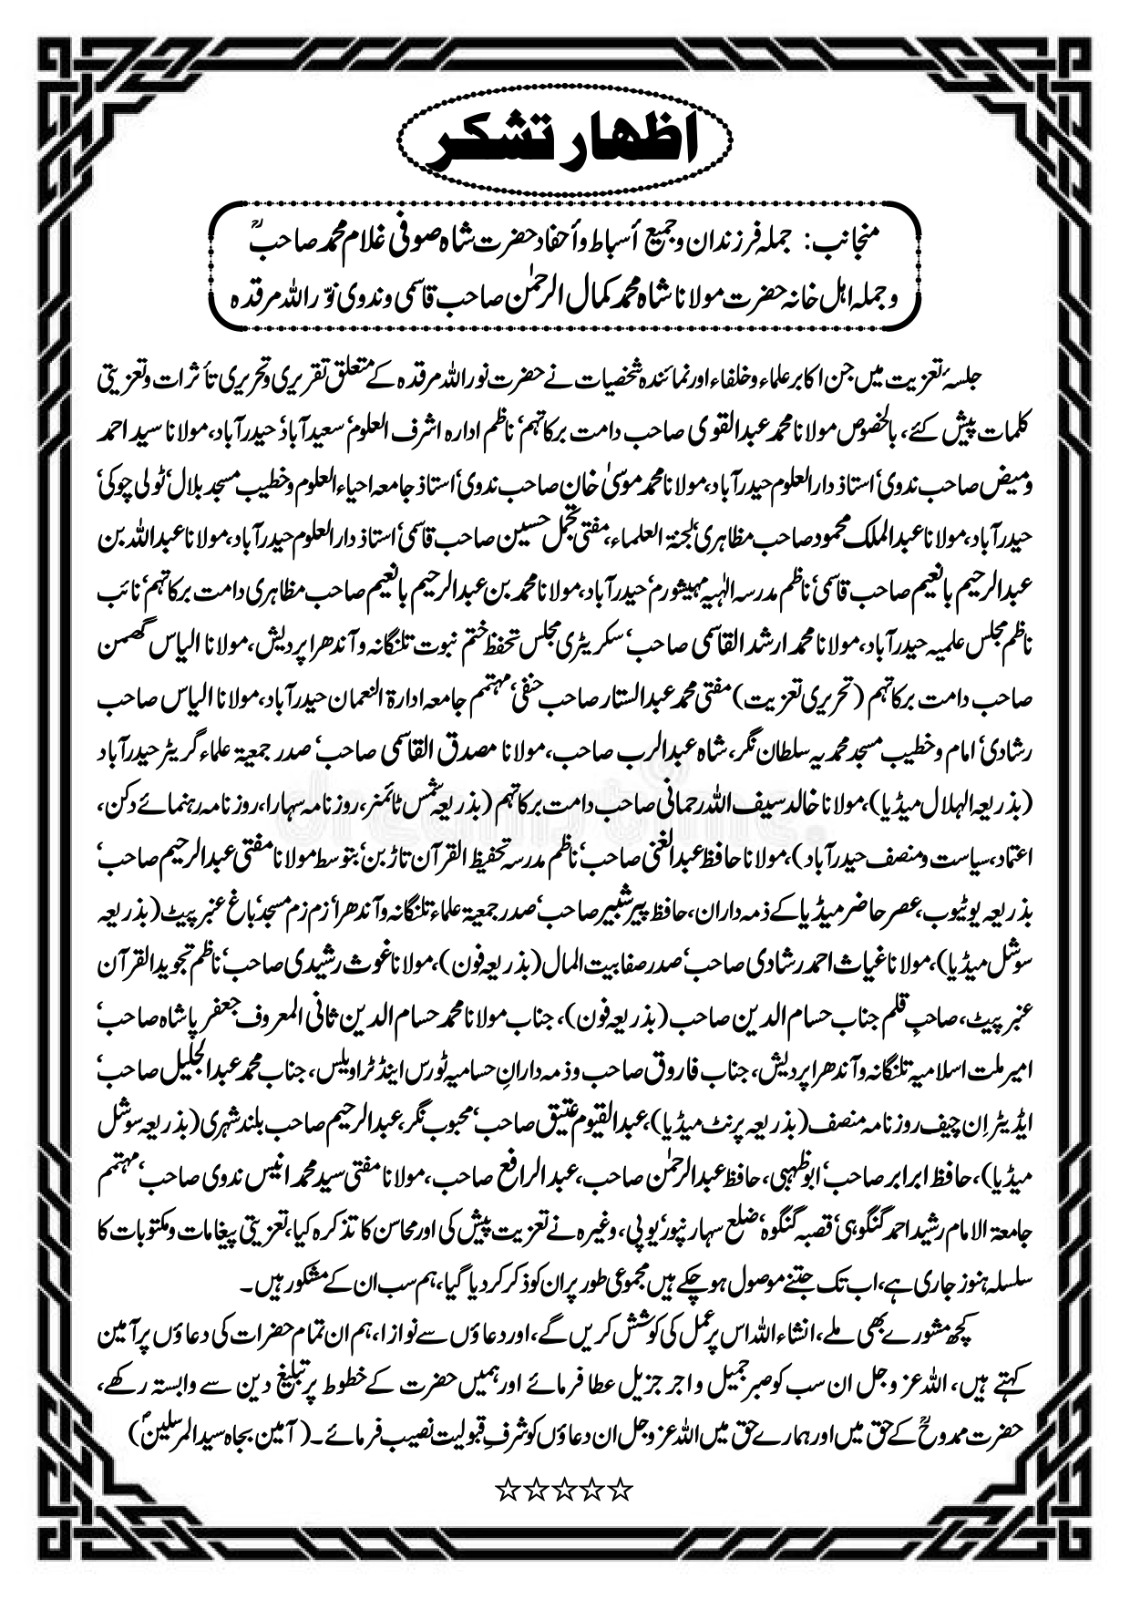 اظہار تشکر
منجانب: جملہ فرزندان و جمیع أسباط و أحفاد حضرت شاہ صوفی غلام محمد صاحبؒ
و جملہ اہل خانہ حضرت مولانا شاہ محمد کمال الرحمٰن صاحب قاسمی و ندوی نوّر اللہ مرقدہ
جلسۂ تعزیت میں جن اکابر علماء و خلفاء اور نمائندہ شخصیات نے حضرت نور اللہ مرقدہ کے متعلق تقریری و تحریری تأثرات و تعزیتی
کلمات پیش کئے، بالخصوص مولانا محمد عبدالقوی صاحب دامت برکاتہم‘ ناظم ادارہ اشرف العلوم‘ سعیدآباد‘ حیدرآباد، مولانا سید احمد
ومیض صاحب ندوی‘ استاذ دارالعلوم حیدرآباد، مولانا محمد موسیٰ خان صاحب ندوی‘ استاذ جامعہ احیاء العلوم و خطیب مسجد بلال‘ ٹولی چوکی‘
حیدرآباد، مولانا عبدالملک محمود صاحب مظاہری‘ لجنۃ العلماء، مفتی تجمل حسین صاحب قاسمی‘ استاذ دارالعلوم حیدرآباد، مولانا عبداللہ بن
عبدالرحیم بانعیم صاحب قاسمی‘ ناظم مدرسہ الٰہیہ مہیشورم‘ حیدرآباد، مولانا محمد بن عبدالرحیم بانعیم صاحب مظاہری دامت برکاتہم‘ نائب
ناظم مجلس علمیہ حیدرآباد، مولانا محمد ارشد القاسمی صاحب‘ سکریٹری مجلس تحفظ ختم نبوت تلنگانہ و آندھرا پردیش، مولانا الیاس گھمن
صاحب دامت برکاتہم (تحریری تعزیت) مفتی محمد عبدالستار صاحب حنفی‘ مہتمم جامعہ ادارۃ النعمان حیدرآباد، مولانا الیاس صاحب
رشادی‘ امام و خطیب مسجد محمدیہ سلطان نگر، شاہ عبدالرب صاحب، مولانا مصدق القاسمی صاحب‘ صدر جمعیۃ علماء گریٹر حیدرآباد
(بذریعہ الہلال میڈیا)، مولانا خالد سیف اللہ رحمانی صاحب دامت برکاتہم (بذریعہ شمس ٹائمنر، روزنامہ سہارا، روزنامہ رہنمائے دکن،
اعتماد، سیاست و منصف حیدرآباد)، مولانا حافظ عبدالغنی صاحب‘ ناظم مدرسہ تحفیظ القرآن تاڑبن‘ بتوسط مولانا مفتی عبدالرحیم صاحب‘
بذریعہ یوٹیوب، عصر حاضر میڈیا کے ذمہ داران، حافظ پیر شبیر صاحب‘ صدر جمعیۃ علماء تلنگانہ و آندھرا‘ زم زم مسجد‘ باغ عنبر پیٹ (بذریعہ
سوشل میڈیا)، مولانا غیاث احمد رشادی صاحب‘ صدر صفا بیت المال (بذریعہ فون)، مولانا غوث رشیدی صاحب‘ ناظم تجوید القرآن
عنبر پیٹ، صاحبِ قلم جناب حسام الدین صاحب (بذریعہ فون)، جناب مولانا محمد حسام الدین ثانی المعروف جعفر پاشاہ صاحب‘
امیر ملت اسلامیہ تلنگانہ و آندھرا پردیش، جناب فاروق صاحب و ذمہ دارانِ حسامیہ ٹورس اینڈ ٹراویلس، جناب محمد عبدالجلیل صاحب‘
ایڈیٹر اِن چیف روزنامہ منصف (بذریعہ پرنٹ میڈیا)، عبدالقیوم عتیق صاحب‘ محبوب نگر، عبدالرحیم صاحب بلند شہری (بذریعہ سوشل
میڈیا)، حافظ ابرابر صاحب‘ ابوظہبی، حافظ عبدالرحمٰن صاحب، عبدالرافع صاحب، مولانا مفتی سید محمد انیس ندوی صاحب‘ مہتمم
جامعۃ الامام رشید احمد گنگوہی‘ قصبہ گنگوہ‘ ضلع سہارنپور‘ یوپی، وغیرہ نے تعزیت پیش کی اور محاسن کا تذکرہ کیا، تعزیتی پیغامات و مکتوبات کا
سلسلہ ہنوز جاری ہے، اب تک جتنے موصول ہوچکے ہیں مجموعی طور پر ان کو ذکر کردیا گیا، ہم سب ان کے مشکور ہیں۔
کچھ مشورے بھی ملے، انشاء اللہ اس پر عمل کی کوشش کریں گے، اور دعاؤں سے نوازا، ہم ان تمام حضرات کی دعاؤں پر آمین
کہتے ہیں، اللہ عزوجل ان سب کو صبر جمیل و اجر جزیل عطا فرمائے اور ہمیں حضرت کے خطوط پر تبلیغ دین سے وابستہ رکھے،
حضرت ممدوحؒ کے حق میں اور ہمارے حق میں اللہ عزوجل ان دعاؤں کو شرفِ قبولیت نصیب فرمائے۔ (آمین بجاہ سید المرسلینؐ)
☆☆☆☆☆
dreamstime.